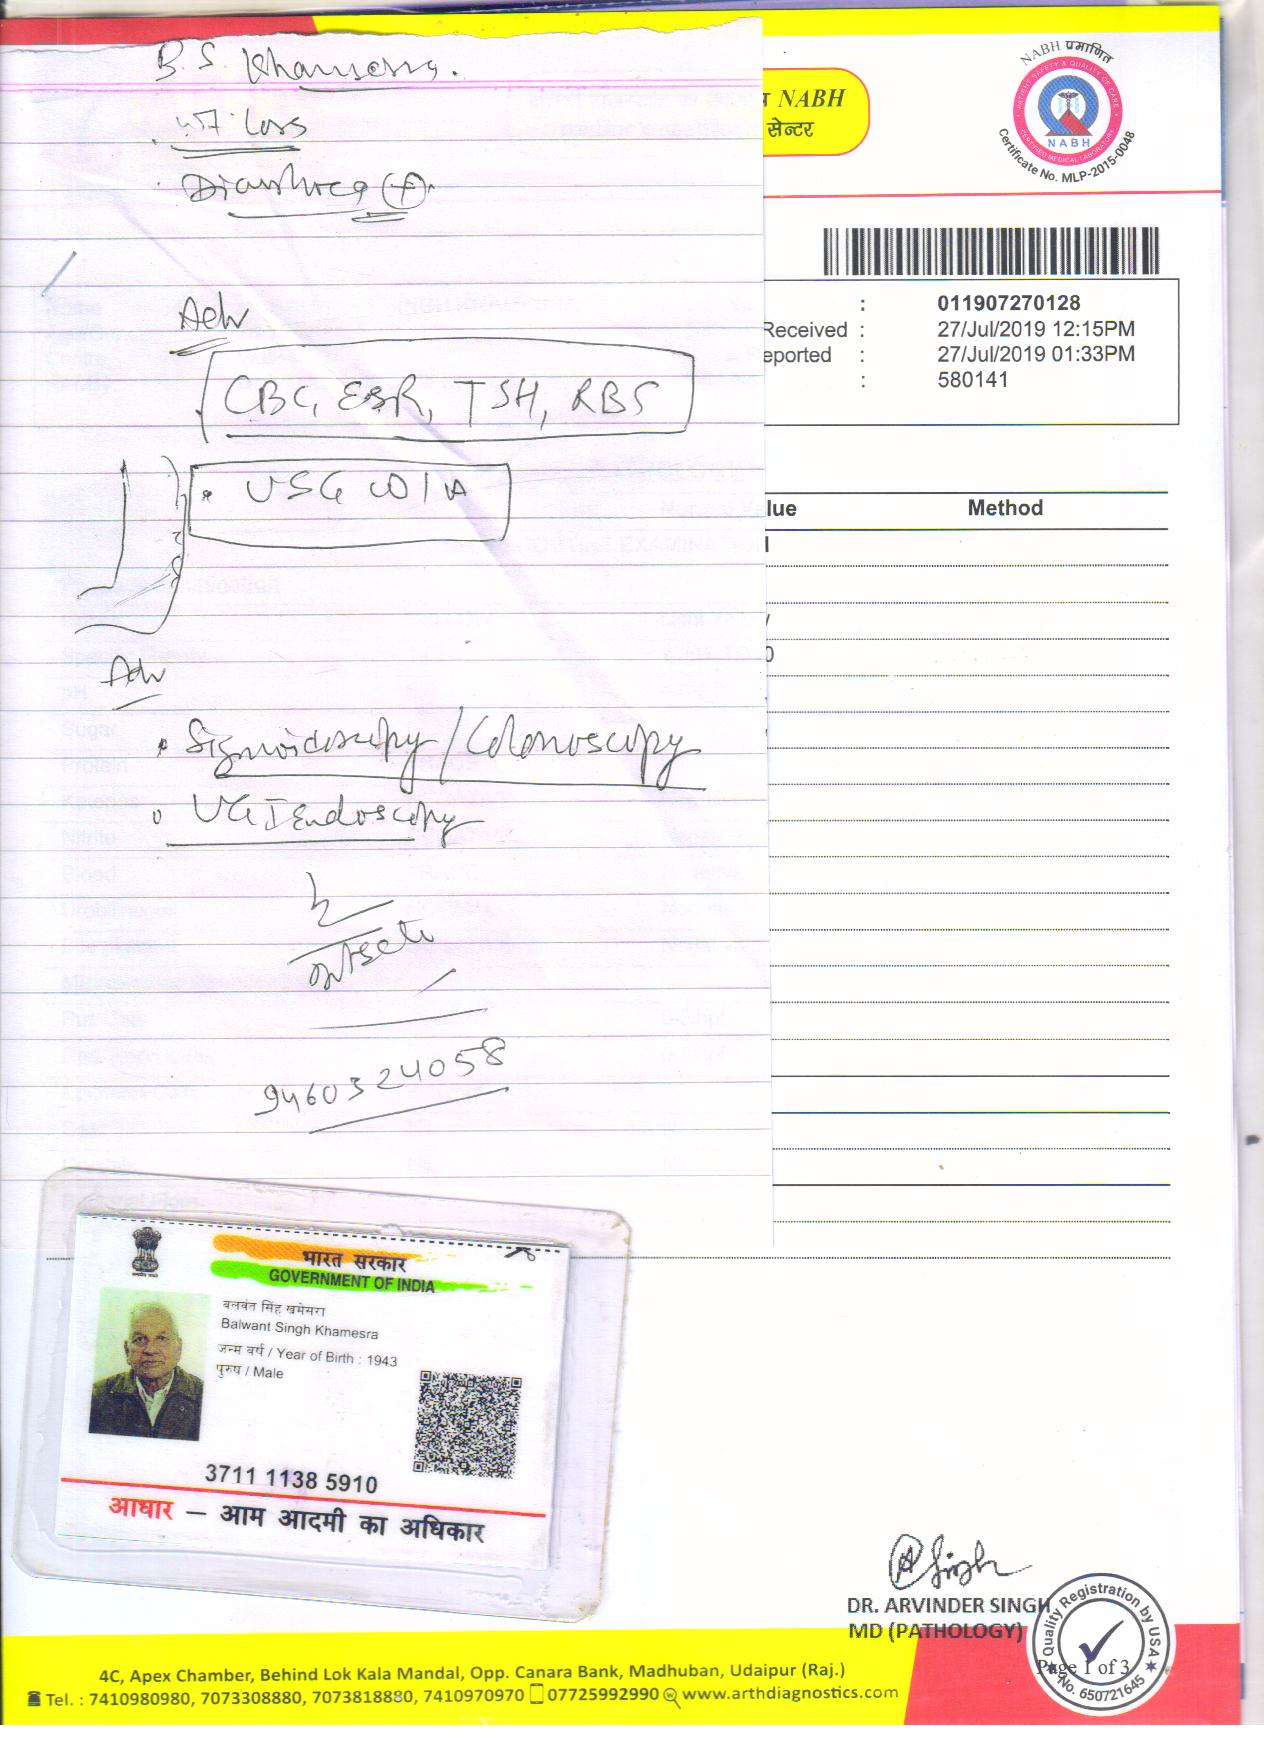 B. S. Khamesra.
wt. Loss
Diarrhoea (+)
Adv
CBC, ESR, TSH, RBS
USG W/A
Adv
Sigmoidoscopy / Colonoscopy
UGI Endoscopy
9460324058
NABH
सेन्टर
NABH प्रमाणित
PATIENT SAFETY & QUALITY OF CARE
NABH
CERTIFIED MEDICAL LABORATORY
Certificate No. MLP-2015-0048
: 011907270128
Received : 27/Jul/2019 12:15PM
eported : 27/Jul/2019 01:33PM
: 580141
lue Method
भारत सरकार
GOVERNMENT OF INDIA
बलवंत सिंह खमेसरा
Balwant Singh Khamesra
जन्म वर्ष / Year of Birth : 1943
पुरुष / Male
3711 1138 5910
आधार – आम आदमी का अधिकार
DR. ARVINDER SINGH
MD (PATHOLOGY)
Quality Registration by USA
No. 650721645
Page 1 of 3
4C, Apex Chamber, Behind Lok Kala Mandal, Opp. Canara Bank, Madhuban, Udaipur (Raj.)
Tel. : 7410980980, 7073308880, 7073818880, 7410970970 07725992990 www.arthdiagnostics.com